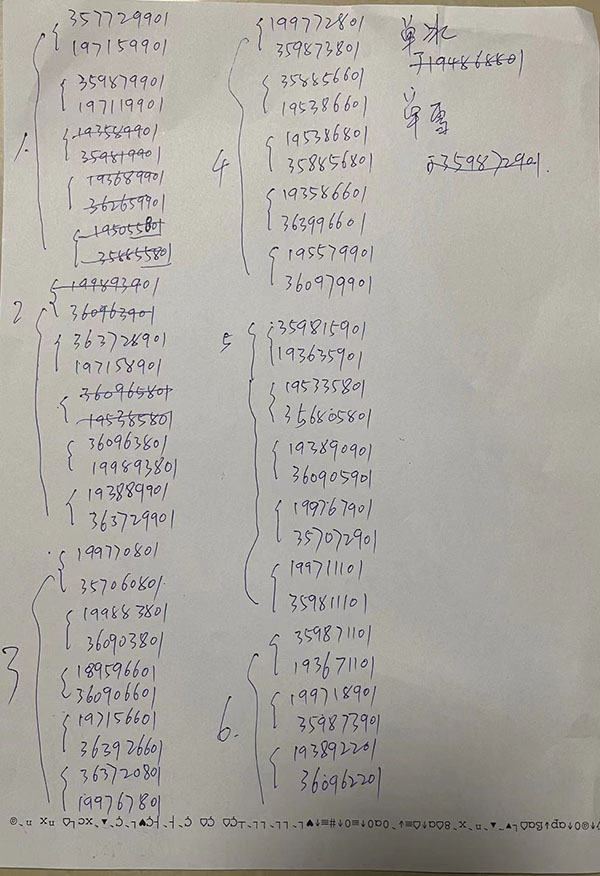 1.
357729901
197159901
359879901
197119901
193589901
359819901
193689901
362659901
195055801
358855801
2
199893901
360963901
363728901
197158901
360965801
195385801
360963801
199893801
193889901
363729901
3
199770801
357060801
199883801
360903801
189596601
360906601
197156601
363926601
363720801
199767801
4
199772801
359873801
358856601
195386601
195386801
358856801
193586601
363996601
195579901
360979901
5
359815901
193635901
195335801
356805801
193890901
360905901
199767901
357072901
199711101
359811101
6.
359871101
193671101
199718901
359873901
193892201
360962201
单冰
194868801
单雪
359872901.